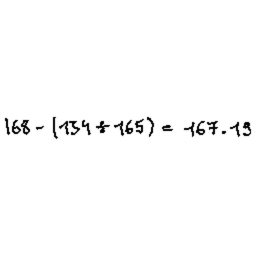 168 - (134 ÷ 165) = 167.19